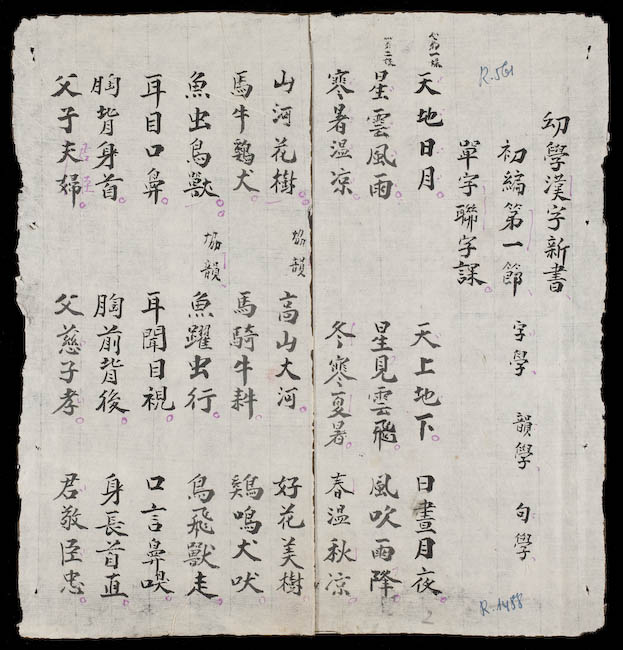 R.561
幼學漢字新書
初編第一節 字學 韻學 句學
單字聯字課
天地日月 天上地下 日晝月夜
星雲風雨 星見雲飛 風吹雨降
寒暑温凉 冬寒夏暑 春温秋凉
山河花樹 協韻 高山大河 好花美樹
馬牛鷄犬 馬騎牛耕 鷄鳴犬吠
魚虫鳥獸 協韻 魚躍虫行 鳥飛獸走
耳目口鼻 耳聞目視 口言鼻嗅
胸背身首 胸前背後 身長首直
父子夫婦 君臣 父慈子孝 君敬臣忠
R.1488
2